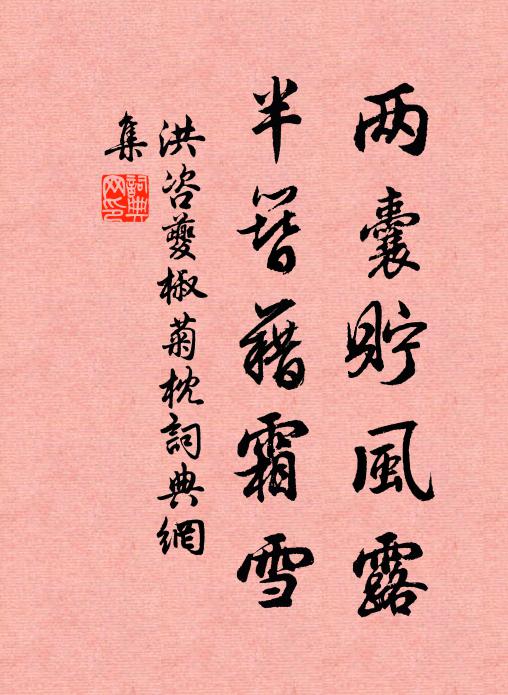 两囊貯風露
半簪藉霜雪
洪咨夔椒菊枕詞典網
集
詞典
网印